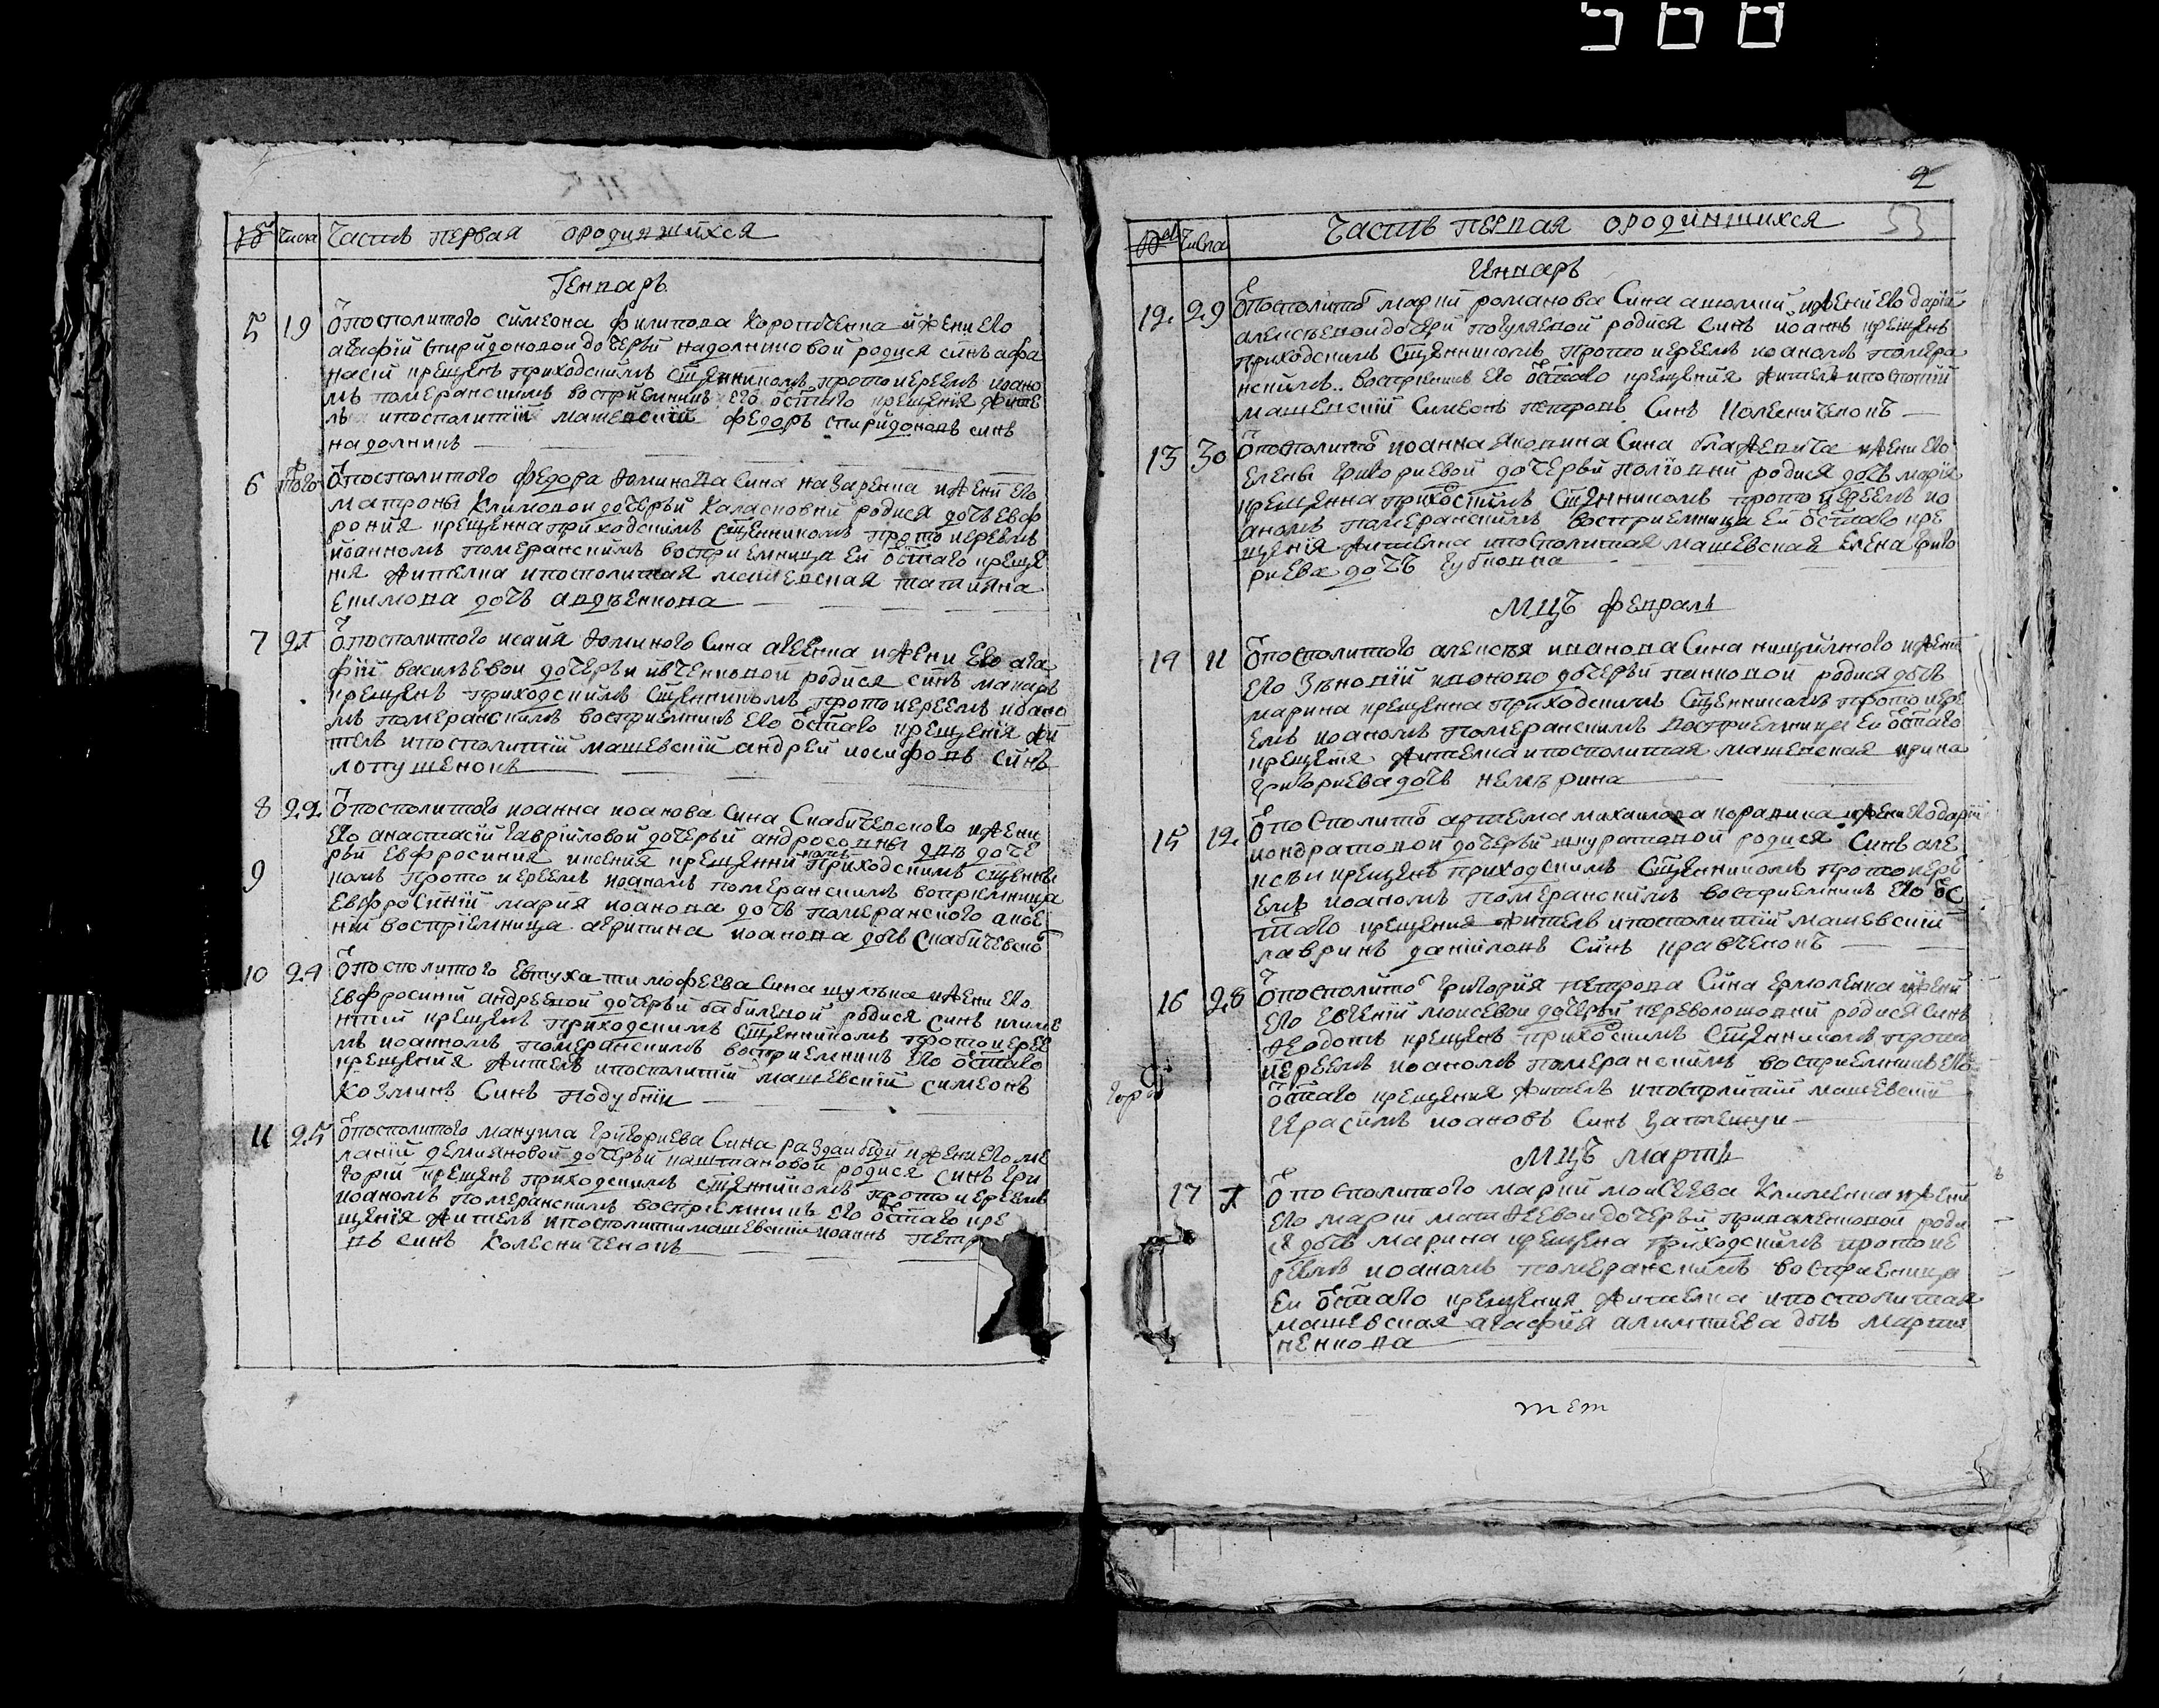 № Числа Часть первая ородившихся
Генварь
5 19 Ѿ посполитого симеона филипова Коропченка и жени его
агафій спиридоновой дочерьй надолниковой родися синъ афа
насій крещенъ приходскимъ Сщенникомъ протоиереемъ иоано
мъ померанскимъ восприемникъ его ѿ стаго крещенія жите
ль и посполитій машевскій федоръ спиридоновъ синъ
надолникъ
6 того Ѿ посполитого федора Фомина Сина назаренка и жени его
матроны Климовои дочерьй Каласовни родися дочь евф
рония крещенна приходскимъ Сщенникомъ протоиереемъ
иоанномъ померанскимъ восприемница ей ѿ стаго креще
ния жителка и посполитая машевская татияна
Екимова дочь
7 21 Ѿ посполитого исаия Фоминого Сина агеенка и жени его ага
фій василѣевои дочерьи ивченковой родися синъ макаръ
крещенъ приходскимъ Сщенникомъ протоиереемъ иоано
мъ померанскимъ восприемникъ его ѿ стаго крещенія жи
тель и посполитій машевскій андрей иосифовъ синъ
лопушенокъ
8 22 Ѿ посполитого иоанна иоанова Сина Скабичевского и жени
его анастасій гаврійловой дочерьй андросовны двѣ доче
рьй Евфросиния и ксения крещенни приходскимъ сщенни
9 комъ протоиереемъ иоаномъ померанскимъ воприемница
Евфросиній мария иоанова дочь померанского аксе
ній воспріемница агрипина иоанова дочь Скабичевско
10 24 Ѿ посполитого Евтуха тимофеева Сина шулѣка и жени его
Евфросиній андреевой дочерьй бабилевой родися синъ
крещенъ приходскимъ Сщенникомъ протоиерее
мъ иоанномъ померанскимъ восприемникъ его ѿ стаго
крещения житель и посполитій машевскій симеонъ
Козминъ Синъ Подубній
11 25 Ѿ посполитого мануила григориева Сина раздайбѣди и жени его ме
ланій демияновой дочерьй каштановой родися синъ гри
горій крещенъ приходскимъ сщенникомъ протоиереемъ
иоаномъ померанскимъ восприемникъ его ѿ стаго кре
щенія житель и посполити машевскій иоаннъ петр
въ синъ Колесниченокъ
2
53
№ Числа Часть первая ородившихся
Иннварь
12 29 Ѿ посполито марий романова Сина и жений его дарій
алексѣевои дочери погуляевой родися синъ иоаннъ крещенъ
приходскимъ Сщенникомъ протоиереемъ иоаномъ помера
нскимъ восприемникъ его ѿ стаго крещения житель и посполитій
машевскій Симеонъ петровъ Синъ Колесниченокъ
13 30 Ѿ посполито иоанна яковина Сина и жени его
Елены григориевой дочерьй родися дочь мария
крещенна прихоскимъ Сщенникомъ протоиереемъ ио
аномъ померанскимъ восприемница ей ѿ стаго кре
щенія жителка и посполитая машевская елена григо
риева дочь
Мцъ февраль
14 11 Ѿ посполитого алексѣя иванова Сина нищимного и жени
его Зѣновій дочерьй панковой родися дочь
марина крещенна приходскимъ Сщенникомъ протоиере
емъ иоаномъ померанскимъ восприемница ей ѿ стаго
крещения жителка и посполитая машевская ирина
григориева дочь немѣрина
15 12 Ѿ посполито артема михаилова корадика и жени его дарій
кондратовой дочерьй шкуратовой родися Синъ але
ксѣи крещенъ приходскимъ Сщенникомъ протоиере
емъ иоаномъ померанскимъ восприемникъ его ѿ с
таго крещения житель и посполитій машевскій
лавринъ данійловъ Синъ кравченокъ
16 28 Ѿ посполито григория петрова Сина ермоленка и жени
его Евгений моисевои дочерьй переволошовни родися Синъ
федотъ крещенъ прихоскимъ Сщенникомъ прото
иереемъ иоаномъ померанскимъ восприемникъ его
ѿ стаго крещения житель и посполитій машевскій
герасимъ иоановъ Синъ
Мцъ мартъ
17 1 Ѿ посполитого марий моисеева Клименка и жени
его марій матфеевои дочерьй приваленковой роди
ся дочь марина крещена приходскимъ протоие
реемъ иоаномъ померанскимъ восприемница
ей ѿ стаго крещения жителка и посполитая
машевская агафия алимпиева дочь марти
ненкова
тет